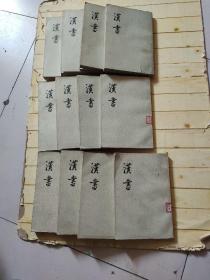 漢書
漢書
漢書
漢書
漢書
漢書
漢書
漢書
漢書
漢書
漢書
漢書